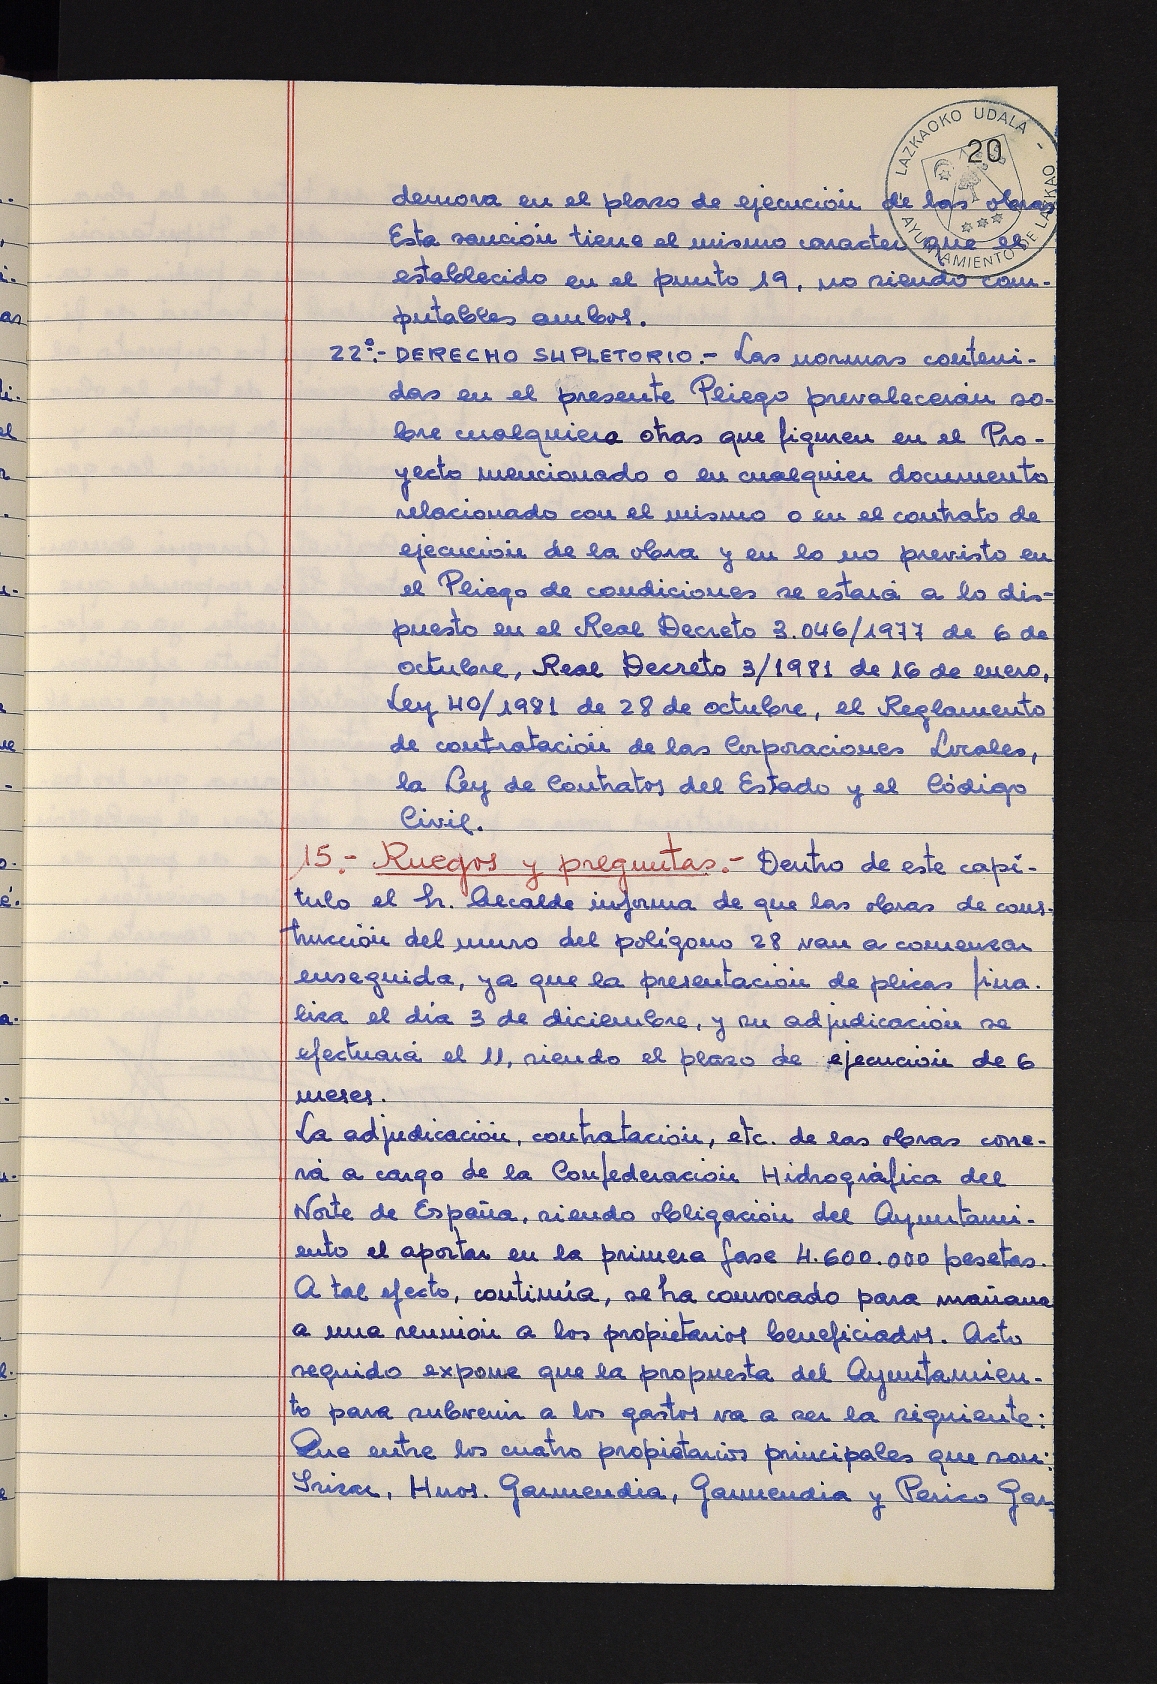 LAZKAOKO UDALA - AYUNTAMIENTO DE LAZKAO
20
demora en el plazo de ejecución de las obras
Esta sanción tiene el mismo caracter que el
establecido en el punto 19, no siendo com-
putables ambos.
22º.- DERECHO SUPLETORIO.- Las normas conteni-
das en el presente Pliego prevalecerán so-
bre cualquiera otras que figuren en el Pro-
yecto mencionado o en cualquier documento
relacionado con el mismo o en el contrato de
ejecución de la obra y en lo no previsto en
el Pliego de condiciones se estará a lo dis-
puesto en el Real Decreto 3.046/1977 de 6 de
octubre, Real Decreto 3/1981 de 16 de enero,
Ley 40/1981 de 28 de octubre, el Reglamento
de contratación de las Corporaciones Locales,
la Ley de Contratos del Estado y el Código
Civil.
15.- Ruegos y preguntas.- Dentro de este capí-
tulo el Sr. Alcalde informa de que las obras de cons-
trucción del muro del polígono 28 van a comenzar
enseguida, ya que la presentación de plicas fina-
liza el día 3 de diciembre, y su adjudicación se
efectuará el 11, siendo el plazo de ejecución de 6
meses.
La adjudicación, contratación, etc. de las obras corre-
rá a cargo de la Confederación Hidrográfica del
Norte de España, siendo obligación del Ayuntami-
ento el aportar en la primera fase 4.600.000 pesetas.
A tal efecto, continúa, se ha convocado para mañana
a una reunión a los propietarios beneficiados. Acto
seguido expone que la propuesta del Ayuntamien-
to para subvenir a los gastos va a ser la siguiente:
Que entre los cuatro propietarios principales que son:
Irizar, Hnos. Garmendia, Garmendia y Perico Gar-